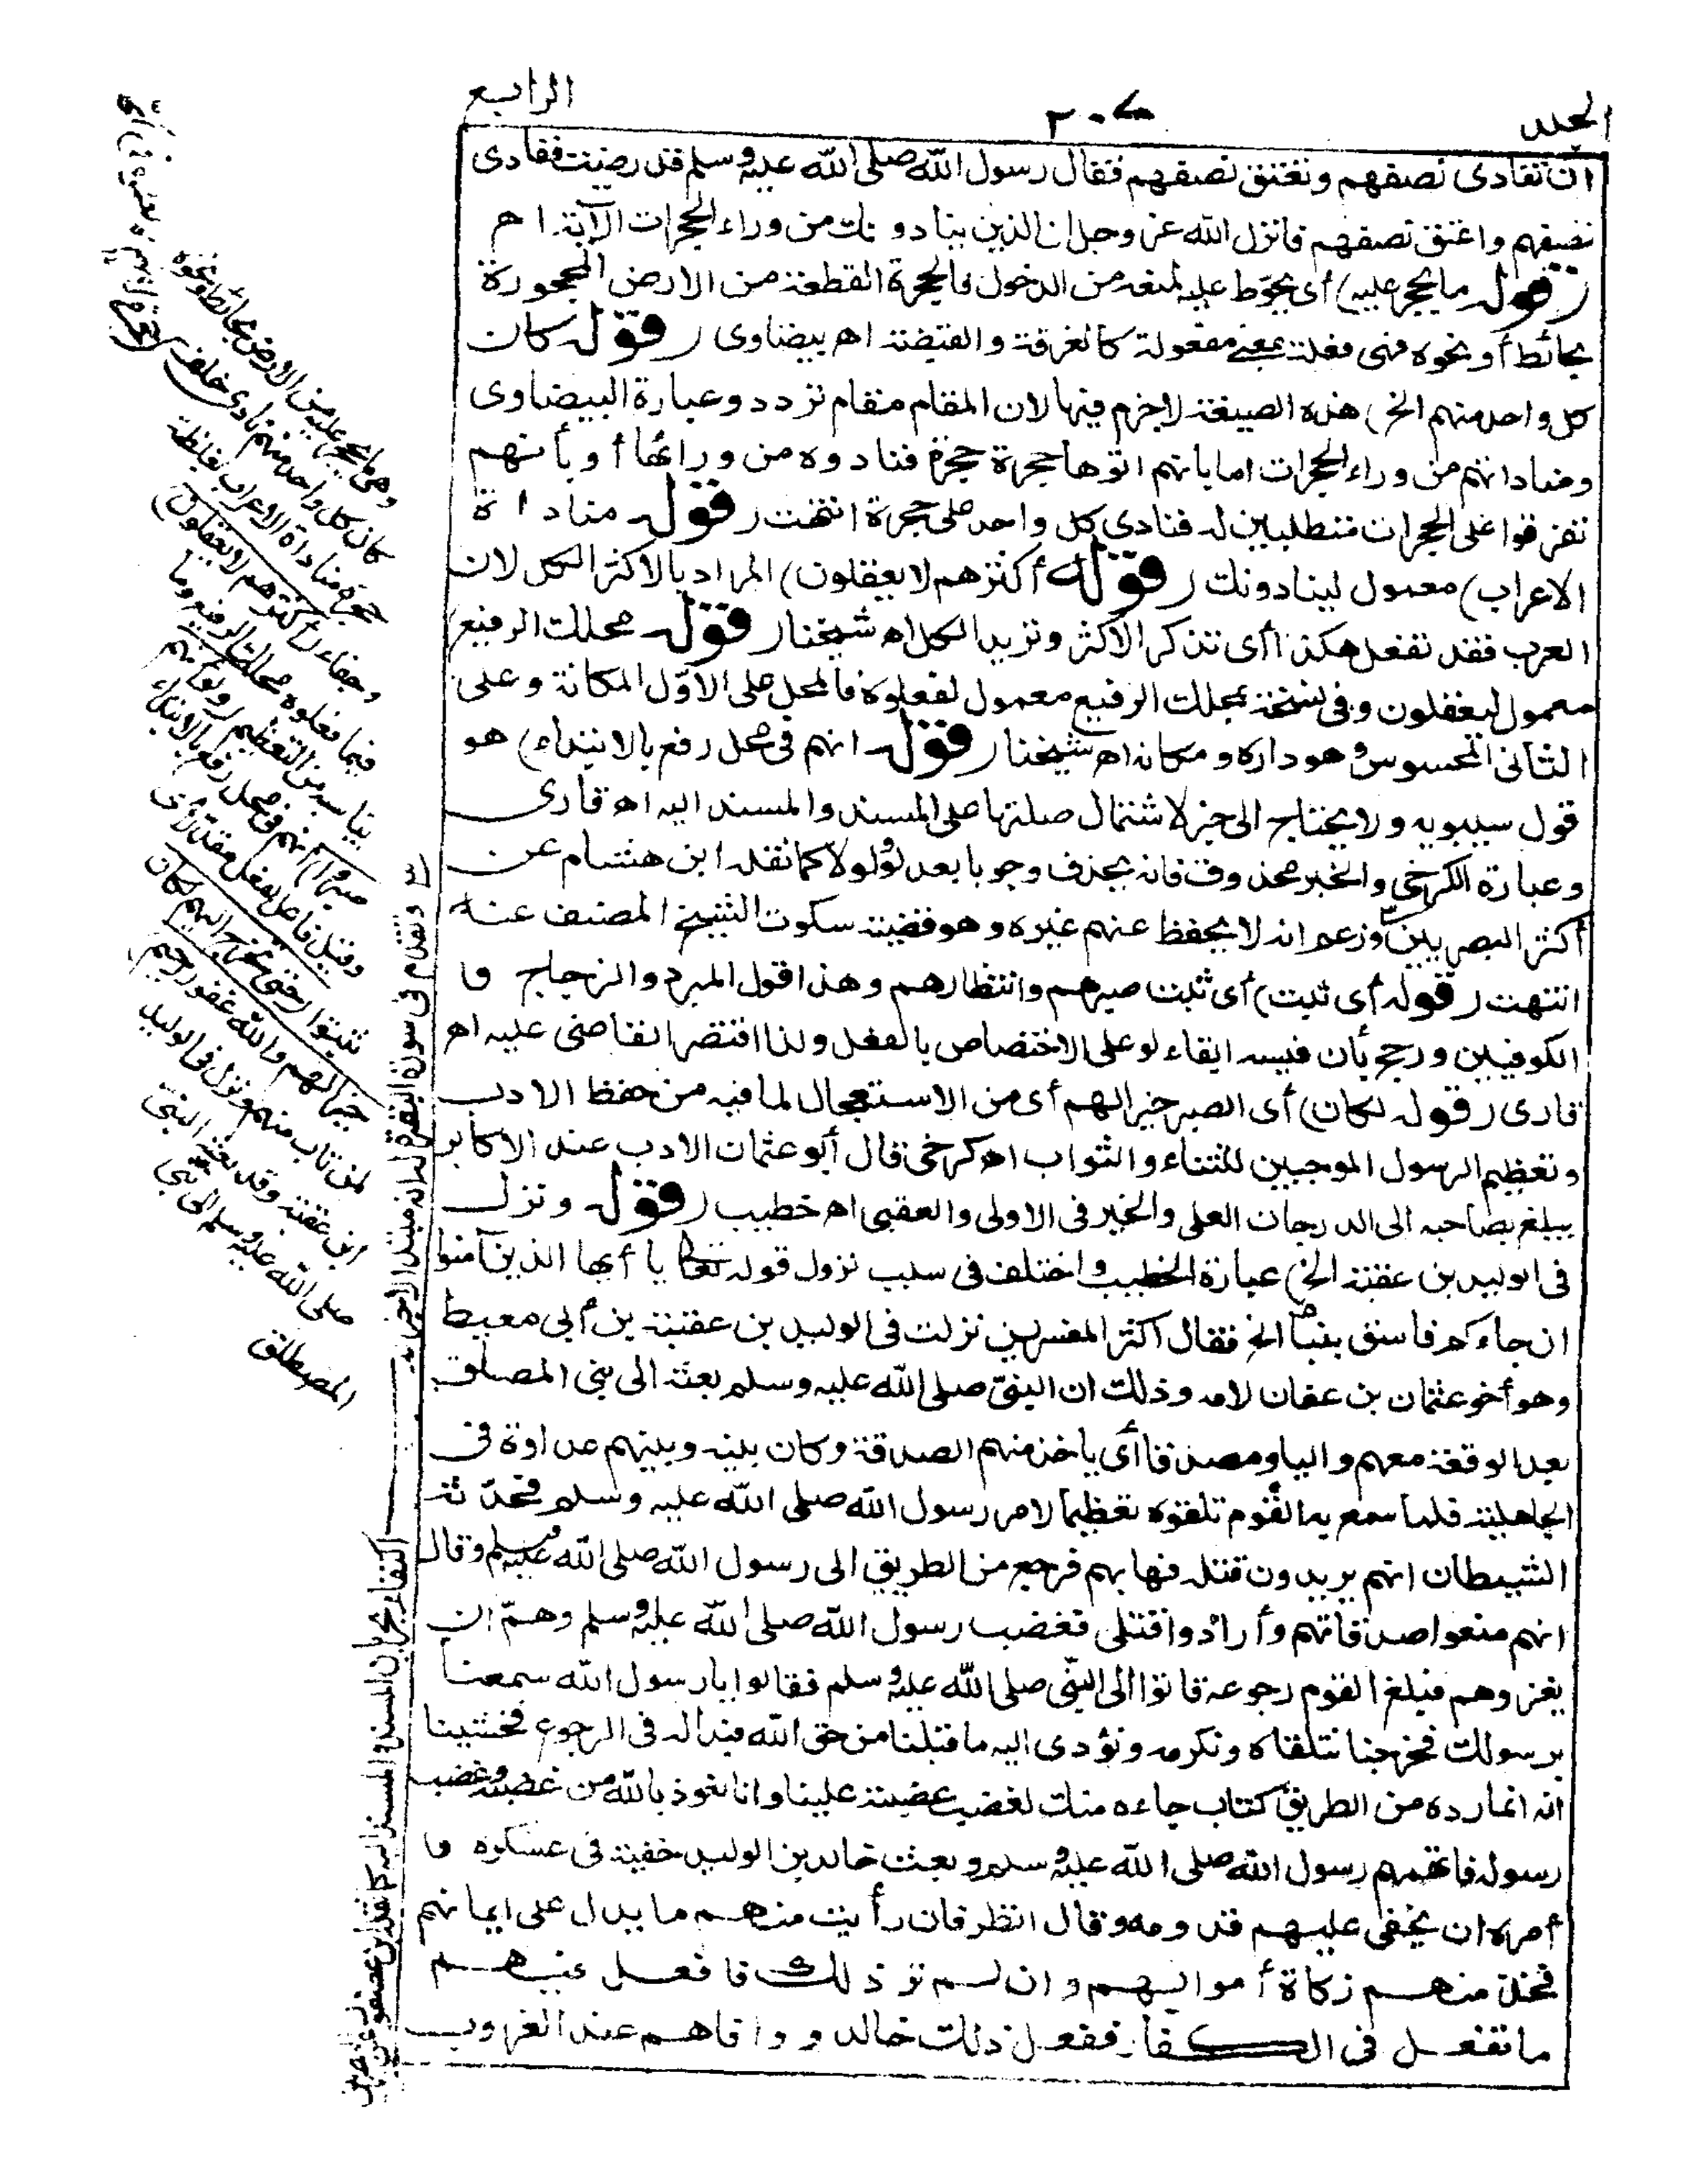 الجلد
٢٠٧
الرابع
ان تفادى نصفهم وتعتق نصفهم فقال رسول الله صلى الله عليه وسلم قد رضيت ففادى
نصفهم واعتق نصفهم فانزل الله عز وجل ان الذين ينادونك من وراء الحجرات الآية اه
(قوله ما يحجر عليه) أى يحوّط عليه لمنعه من الدخول فالحجرة القطعة من الارض المحجورة
بحائط أو نحوه فهى فعلة بمعنى مفعولة كالغرفة والقبضة اه بيضاوى (قوله كان
كل واحد منهم الخ) هذه الصيغة لا جزم فيها لان المقام مقام تردد وعبارة البيضاوى
ومناداتهم من وراء الحجرات اما بانهم اتوها حجرة حجرة فنادوه من ورائها أو بأنهم
تفرقوا على الحجرات متطلبين له فنادى كل واحد على حجرة انتهت (قوله مناداة
الاعراب) معمول لينادونك (قوله أكثرهم لا يعقلون) المراد بالاكثر الكل لان
العرب فقد تفعل هكذا أى تذكر الاكثر وتريد الكل اه شيخنا (قوله محلك الرفيع)
معمول ليعقلون وفى نسخة بمحلك الرفيع معمول لفعلوه فالمحل على الاوّل المكانة وعلى
الثانى المحسوس وهو داره ومكانه اه شيخنا (قوله انهم فى محل رفع بالابتداء) هو
قول سيبويه ولا يحتاج الى خبر لاشتمال صلتها على المسند والمسند اليه اه قارى
وعبارة الكرخى والخبر محذوف فانه يحذف وجوبا بعد لو ولولا كما نقله ابن هشام عن
أكثر البصريين وزعم انه لا يحفظ عنهم غيره وهو قضية سكوت الشيخ المصنف عنه
انتهت (قوله أى ثبت) أى ثبت صبرهم وانتظارهم وهذا قول المبرد والزجاج و
الكوفيين ورجح بأن فيه ابقاء لو على الاختصاص بالفعل ولذا اقتصر القاضى عليه اه
قارى (قوله لكان) أى الصبر خيرا لهم أى من الاستعجال لما فيه من حفظ الادب
وتعظيم الرسول الموجبين للثناء والثواب اه كرخى قال أبو عثمان الادب عند الاكابر
يبلغ بصاحبه الى الدرجات العلى والخير فى الاولى والعقبى اه خطيب (قوله ونزل
فى الوليد بن عقبة الخ) عبارة الخطيب واختلف فى سبب نزول قوله تعالى يا أيها الذين آمنوا
ان جاءكم فاسق بنبأ الخ فقال اكثر المفسرين نزلت فى الوليد بن عقبة بن أبى معيط
وهو أخو عثمان بن عفان لامه وذلك ان النبىّ صلى الله عليه وسلم بعثه الى بنى المصطلق
بعد الوقعة معهم واليا ومصدقا أى يأخذ منهم الصدقة وكان بينه وبينهم عداوة فى
الجاهلية فلما سمع به القوم تلقوه تعظيما لامر رسول الله صلى الله عليه وسلم فحدّثه
الشيطان انهم يريدون قتله فهابهم فرجع من الطريق الى رسول الله صلى الله عليه وسلم وقال
انهم منعوا صدقاتهم وأرادوا قتلى فغضب رسول الله صلى الله عليه وسلم وهمّ ان
يغزوهم فبلغ القوم رجوعه فاتوا الى النبىّ صلى الله عليه وسلم فقالوا يا رسول الله سمعنا
برسولك فخرجنا نتلقاه ونكرمه ونؤدى اليه ما قبلنا من حق الله فبدا له فى الرجوع فخشينا
انه انما رده من الطريق كتاب جاءه منك لغضب غضبته علينا وانا نعوذ بالله من غضبه وغضب
رسوله فاتهمهم رسول الله صلى الله عليه وسلم وبعث خالد بن الوليد خفية فى عسكره و
أمره ان يخفى عليهم قدومه وقال انظر فان رأيت منهم ما يدل على ايمانهم
فخذ منهم زكاة أموالهم وان لم تر ذلك فافعل فيهم
ما تفعل فى الكفار ففعل ذلك خالد ووافاهم عند الغروب
وهى ما يحجر عليه من الارض بحائط ونحوه
كان كل واحد منهم نادى خلف
حجرة مناداة الاعراب بغلظة
وجفاء (أكثرهم لا يعقلون)
فيما فعلوه محلك الرفيع وما
يناسبه من التعظيم (ولو أنهم
صبروا) أنهم فى محل رفع بالابتداء
وقيل فاعل لفعل مقدر أى
ثبت (حتى تخرج اليهم لكان
خيرا لهم والله غفور رحيم)
لمن تاب منهم ونزل فى الوليد
ابن عقبة وقد بعثه النبىّ
صلى الله عليه وسلم الى بنى
المصطلق
وتقدم فى سورة البقرة انه مبتدأ لا خبر له
اكتفاء بجريان المسند والمسند اليه كما نقله ابن عصفور عن البصريين